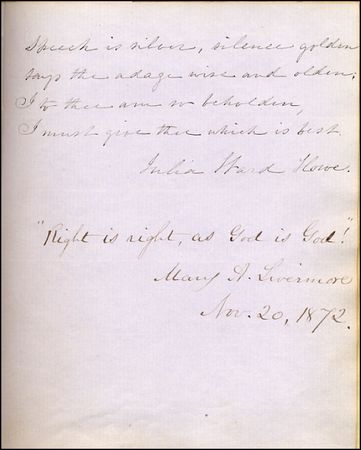 Speech is silver, silence golden
says the adage wise and olden;
I to thee am so beholden,
I must give thee which is best.
Julia Ward Howe.
"Right is right, as God is God"!
Mary A. Livermore
Nov. 20, 1872.